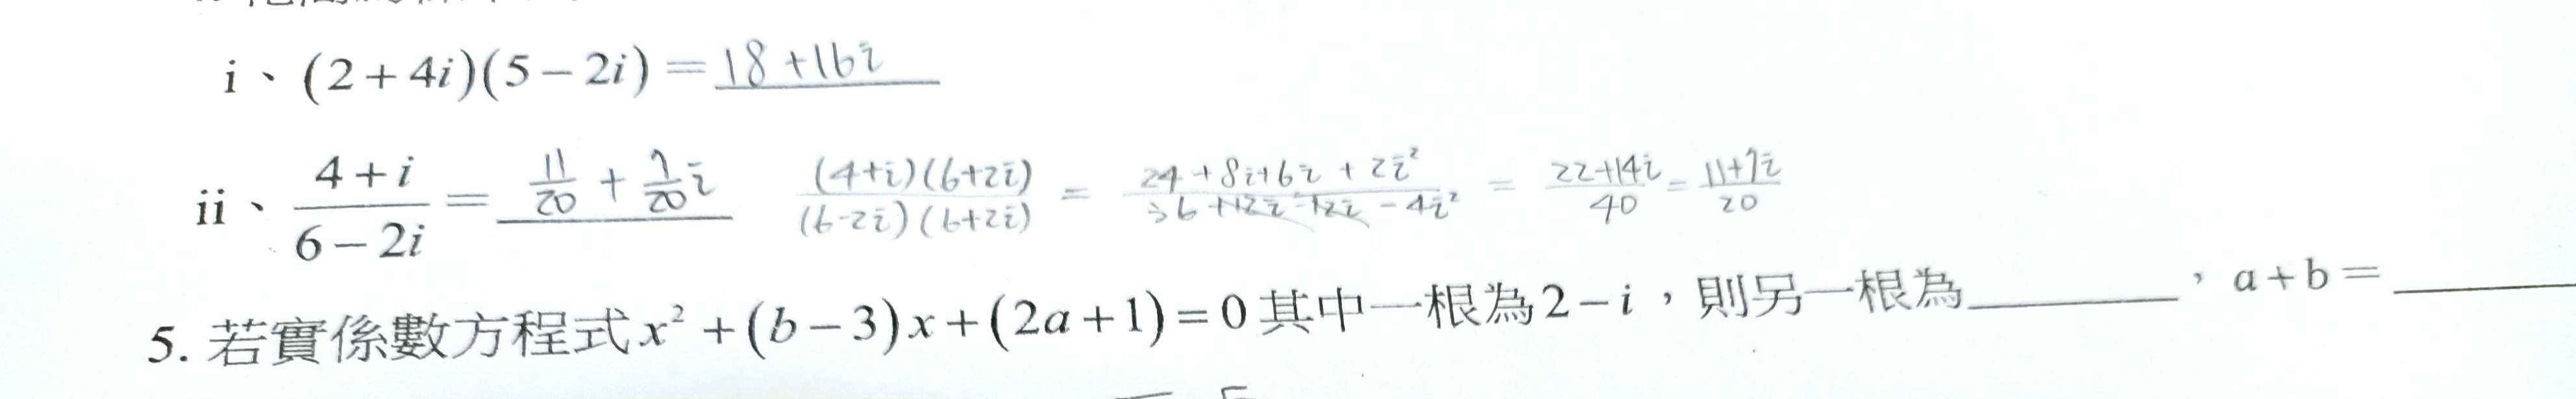 i、(2+4i)(5-2i)=18+16i
ii、\frac{4+i}{6-2i}=\frac{11}{20}+\frac{7}{20}i \frac{(4+i)(6+2i)}{(6-2i)(6+2i)}=\frac{24+8i+6i+2i²}{36+12i-12i-4i²}=\frac{22+14i}{40}=\frac{11+7i}{20}
5. 若實係數方程式x²+(b-3)x+(2a+1)=0其中一根為2-i,則另一根為________,a+b=________